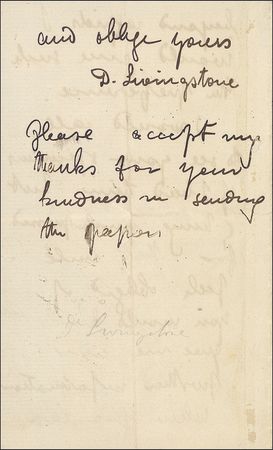 and oblige yours
D. Livingstone
Please accept my
thanks for your
kindness in sending
the papers
D. Livingstone